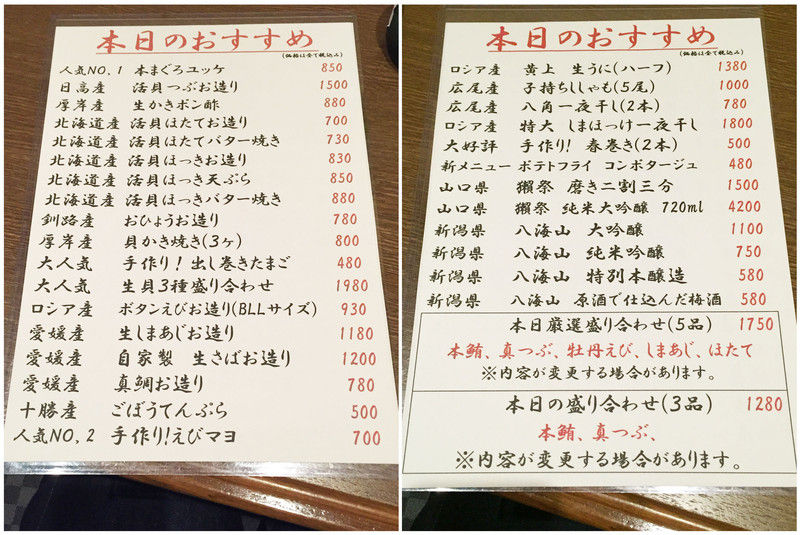 本日のおすすめ
(価格は全て税込み)
人気NO,1 本まぐろユッケ 850
日高産 活貝つぶお造り 1500
厚岸産 生かきポン酢 880
北海道産 活貝ほたてお造り 700
北海道産 活貝ほたてバター焼き 730
北海道産 活貝ほっきお造り 830
北海道産 活貝ほっき天ぷら 850
北海道産 活貝ほっきバター焼き 880
釧路産 おひょうお造り 780
厚岸産 貝かき焼き(3ヶ) 800
大人気 手作り!出し巻きたまご 480
大人気 生貝3種盛り合わせ 1980
ロシア産 ボタンえびお造り(BLLサイズ) 930
愛媛産 生しまあじお造り 1180
愛媛産 自家製 生さばお造り 1200
愛媛産 真鯛お造り 780
十勝産 ごぼうてんぷら 500
人気NO,2 手作り!えびマヨ 700
本日のおすすめ
(価格は全て税込み)
ロシア産 黄上 生うに(ハーフ) 1380
広尾産 子持ちししゃも(5尾) 1000
広尾産 八角一夜干し(2本) 780
ロシア産 特大 しまほっけ一夜干し 1800
大好評 手作り! 春巻き(2本) 500
新メニュー ポテトフライ コンポタージュ 480
山口県 獺祭 磨き二割三分 1500
山口県 獺祭 純米大吟醸 720ml 4200
新潟県 八海山 大吟醸 1100
新潟県 八海山 純米吟醸 750
新潟県 八海山 特別本醸造 580
新潟県 八海山 原酒で仕込んだ梅酒 580
本日厳選盛り合わせ(5品) 1750
本鮪、真つぶ、牡丹えび、しまあじ、ほたて
※内容が変更する場合があります。
本日の盛り合わせ(3品) 1280
本鮪、真つぶ、
※内容が変更する場合があります。